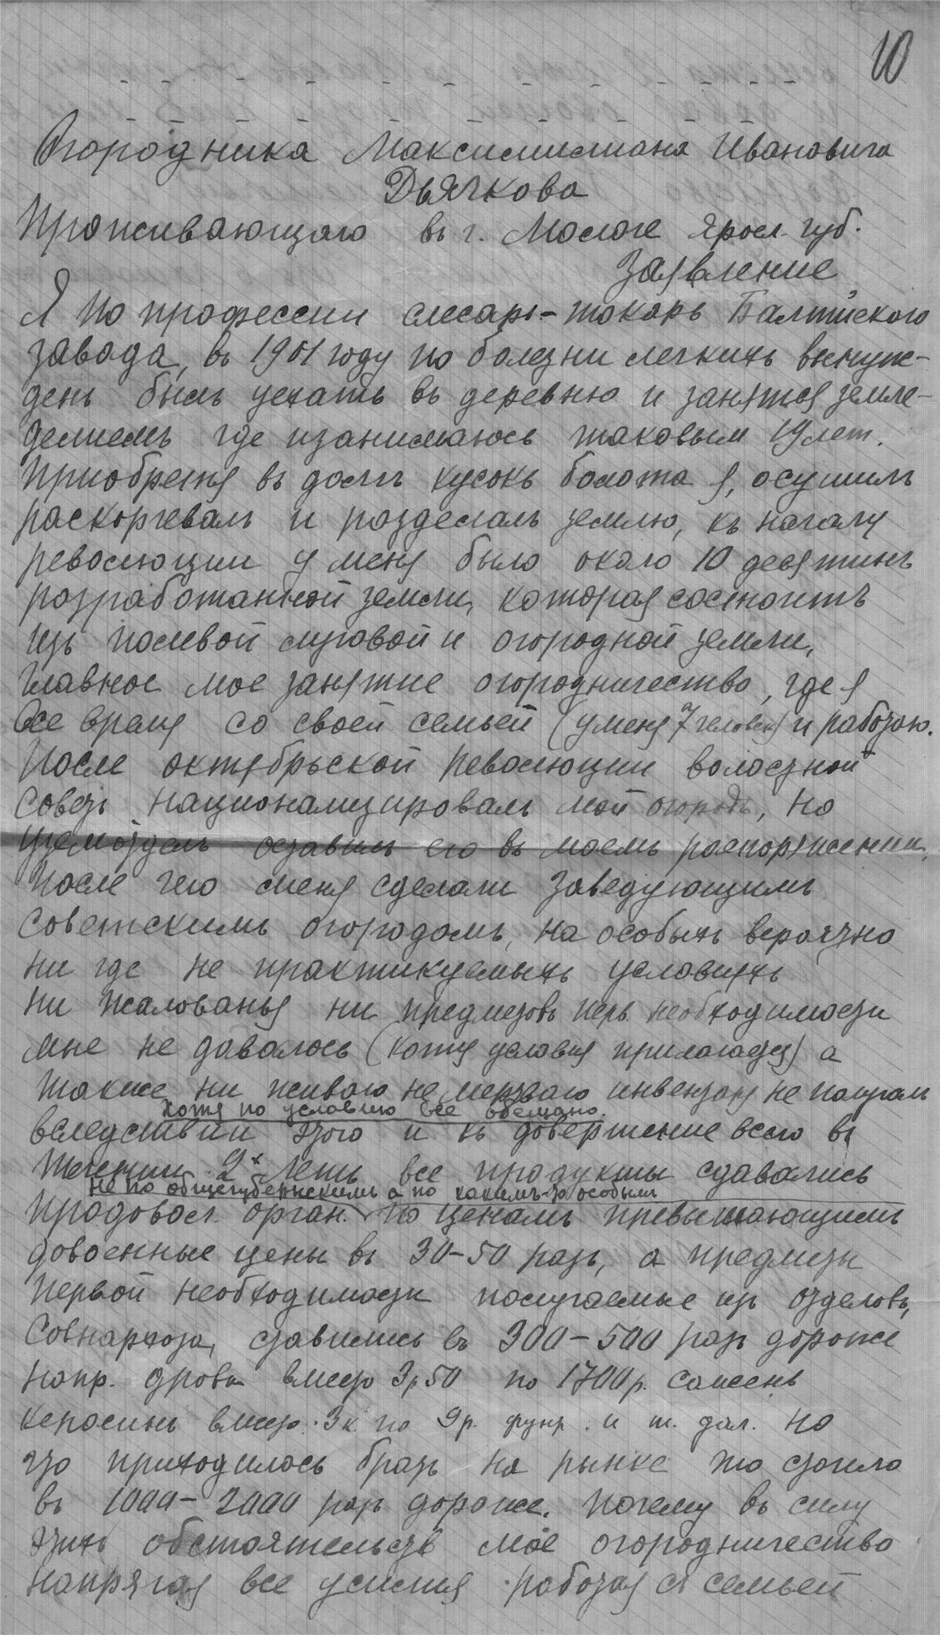 10
Огородника Максимилиана Ивановича
Дьячкова
Проживающаго въ г. Мологе Яросл. губ.
Заявление
Я по профессии слесарь-токарь Балтийского
завода, въ 1901 году по болезни легкихъ вынуж-
денъ былъ уехать въ деревню и занятся земле-
делиемъ где и занимаюсь таковым 19 лет.
Приобретя въ долгъ кусокъ болота я, осушилъ
раскорчевалъ и розделалъ землю, къ началу
революции у меня было около 10 десятинъ
розработанной земли, которая состоитъ
изъ полевой луговой и огородной земли,
главное мое занятие огородничество, где я
все время со своей семьей (у меня 7 человек) и работаю.
После октябрьской революции волостной
советъ национализировалъ мой огородъ, но
Уземотделъ оставилъ его въ моемъ распоряжении,
после чего меня сделали заведующимъ
советскимъ огородомъ, на особыхъ вероятно
ни где не практикуемыхъ условияхъ
ни жалованья ни предметовъ перв. необходимости
мне не давалось (копия условия прилагается) а
также ни живого не мертваго инвентаря не получалъ
хотя по условию все обещано.
вследствии этого и къ довершение всего въ
течении 2х летъ все продукты сдавались
не по общегубернскимъ а по какимъ-то особым
продовол. орган. по ценамъ превышающимъ
довоенные цены въ 30-50 разъ, а предметы
первой необходимости получаемые из отделовъ,
Совнархоза, ставились въ 300-500 разъ дороже
напр. дрова вместо 3р50 по 1700р. сажень
керосинъ вместо 3к. по 9р. фунт. и т. дал. но
что приходилось брать на рынке то стоило
въ 1000-2000 разъ дороже. Почему въ силу
этихъ обстоятельствъ мое огородничество
напрягая все усилия работая съ семьей